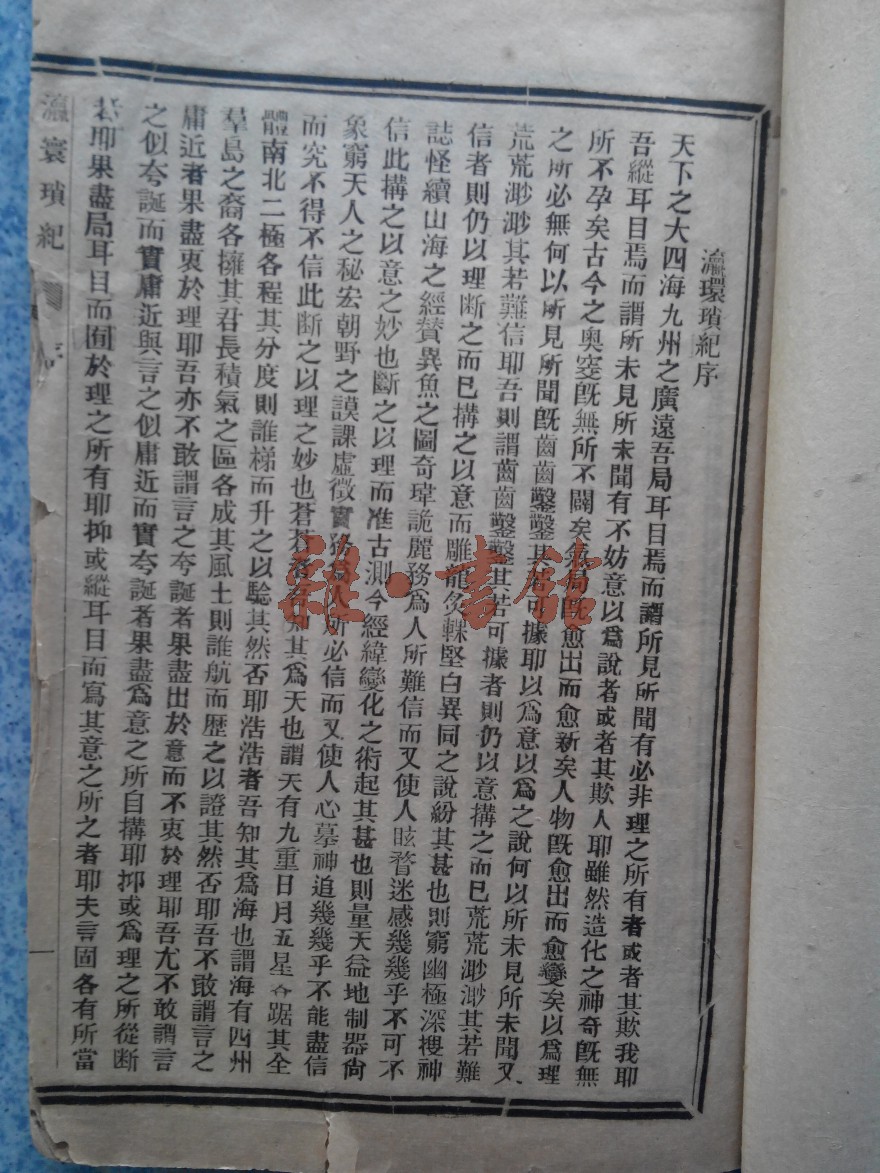 瀛環瑣紀序
天下之大四海九州之廣遠吾局耳目焉而謂所見所聞有必非理之所有者或者其欺我耶
吾縱耳目焉而謂所未見所未聞有不妨意以爲說者或者其欺人耶雖然造化之神奇旣無
所不孕矣古今之奧窔旣無所不闢矣氣局旣愈出而愈新矣人物旣愈出而愈變矣以爲理
之所必無何以所見所聞旣齒齒鑿鑿其若可據耶以爲意以爲之說何以所未見所未聞又
荒荒渺渺其若難信耶吾則謂齒齒鑿鑿其若可據者則仍以意搆之而巳荒荒渺渺其若難
信者則仍以理断之而巳搆之以意而雕龍炙輠堅白異同之說紛其甚也則窮幽極深搜神
誌怪續山海之經贊異魚之圖奇瑋詭麗務爲人所難信而又使人眩瞀迷惑幾幾乎不可不
信此搆之以意之妙也斷之以理而准古測今經緯變化之術起其甚也則量天益地制器尙
象窮天人之秘宏朝野之謨課虛徵實務爲人所必信而又使人心摹神追幾幾乎不能盡信
而究不得不信此断之以理之妙也蒼蒼者吾知其爲天也謂天有九重日月五星各踞其全
體南北二極各程其分度則誰梯而升之以驗其然否耶浩浩者吾知其爲海也謂海有四州
羣島之裔各擁其君長積氣之區各成其風土則誰航而歷之以證其然否耶吾不敢謂言之
庸近者果盡衷於理耶吾亦不敢謂言之夸誕者果盡出於意而不衷於理耶吾尤不敢謂言
之似夸誕而實庸近與言之似庸近而實夸誕者果盡爲意之所自搆耶抑或爲理之所從断
者耶果盡局耳目而囿於理之所有耶抑或縱耳目而寫其意之所之者耶夫言固各有所當
瀛寰瑣紀 序
雜·書館